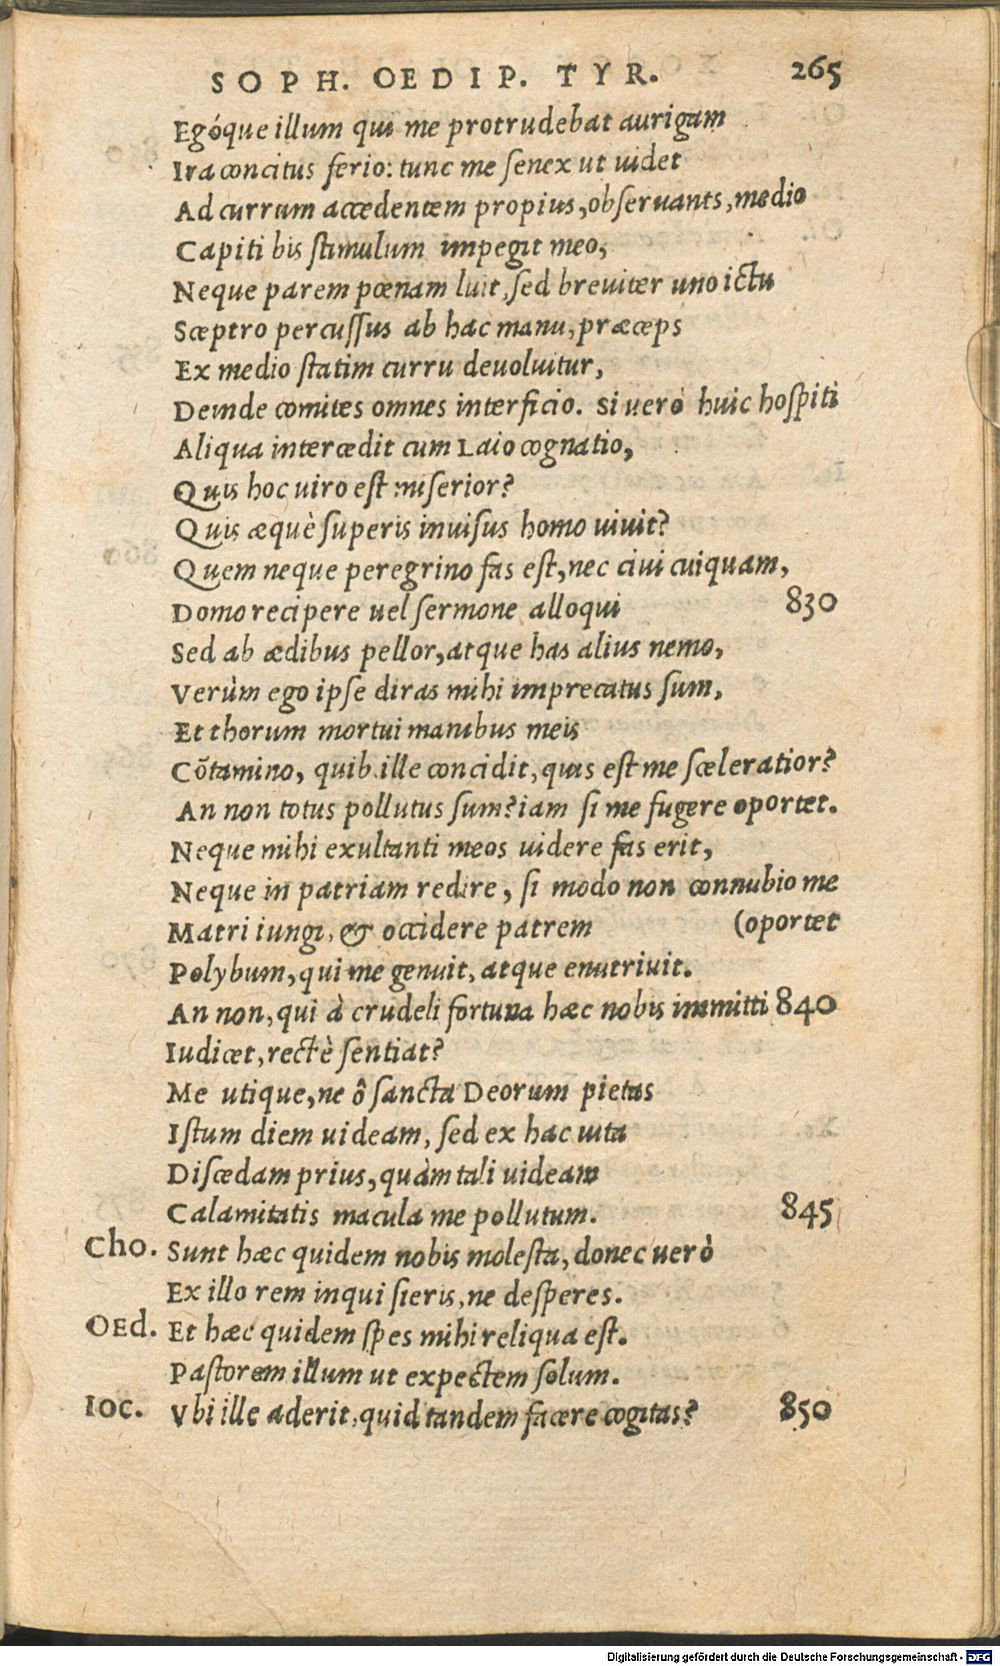 SOPH. OEDIP. TYR. 265
Egóque illum qui me protrudebat aurigam
Ira concitus ferio: tunc me senex ut uidet
Ad currum accedentem propius, obseruants, medio
Capiti bis stimulum impegit meo,
Neque parem pœnam luit, sed breuiter uno ictu
Sceptro percussus ab hac manu, præceps
Ex medio statim curru deuoluitur,
Deinde comites omnes interficio. Si uerò huic hospiti
Aliqua intercedit cum Laio cognatio,
Quis hoc uiro est miserior?
Quis æquè superis inuisus homo uiuit?
Quem neque peregrino fas est, nec ciui cuiquam,
Domo recipere uel sermone alloqui 830
Sed ab ædibus pellor, atque has alius nemo,
Verùm ego ipse diras mihi imprecatus sum,
Et thorum mortui manibus meis
Cõtamino, quib. ille concidit, quis est me sceleratior?
An non totus pollutus sum? iam si me fugere oportet.
Neque mihi exultanti meos uidere fas erit,
Neque in patriam redire, si modo non connubio me
Matri iungi, & occidere patrem (oportet
Polybum, qui me genuit, atque enutriuit.
An non, qui à crudeli fortuna hæc nobis immitti 840
Iudicet, rectè sentiat?
Me utique, ne ô sancta Deorum pietas
Istum diem uideam, sed ex hac uita
Discedam prius, quàm tali uideam
Calamitatis macula me pollutum. 845
Cho. Sunt hæc quidem nobis molesta, donec uerò
Ex illo rem inquisieris, ne desperes.
OEd. Et hæc quidem spes mihi reliqua est.
Pastorem illum ut expectem solum.
Ioc. Vbi ille aderit, quid tandem facere cogitas? 850
Digitalisierung gefördert durch die Deutsche Forschungsgemeinschaft - DFG